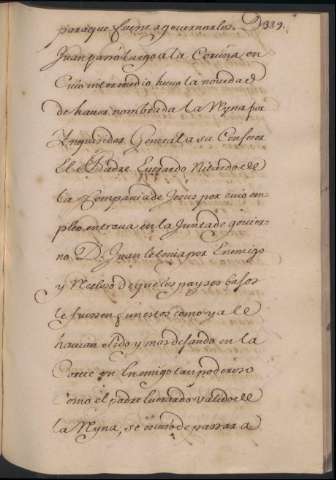 para que fuese a governarlos. D. 389.
Juan passó luego a la Coruña, en
cuio intermedio huvo la novedad
de haver nombrado la Reyna por
Inquisidor General a su Confesor
El Padre Everardo Nitardo de
la Compañia de Jesus por cuio em-
pleo entrava en la Junta de govier-
no. D. Juan le tenia por Enemigo
y Receloso de que los payses bajos
le fuessen funestos como ya le
havian sido y mas dejando en la
Corte un Enemigo tan poderoso
como el padre Everardo valido de
la Reyna, se escusó de passar a